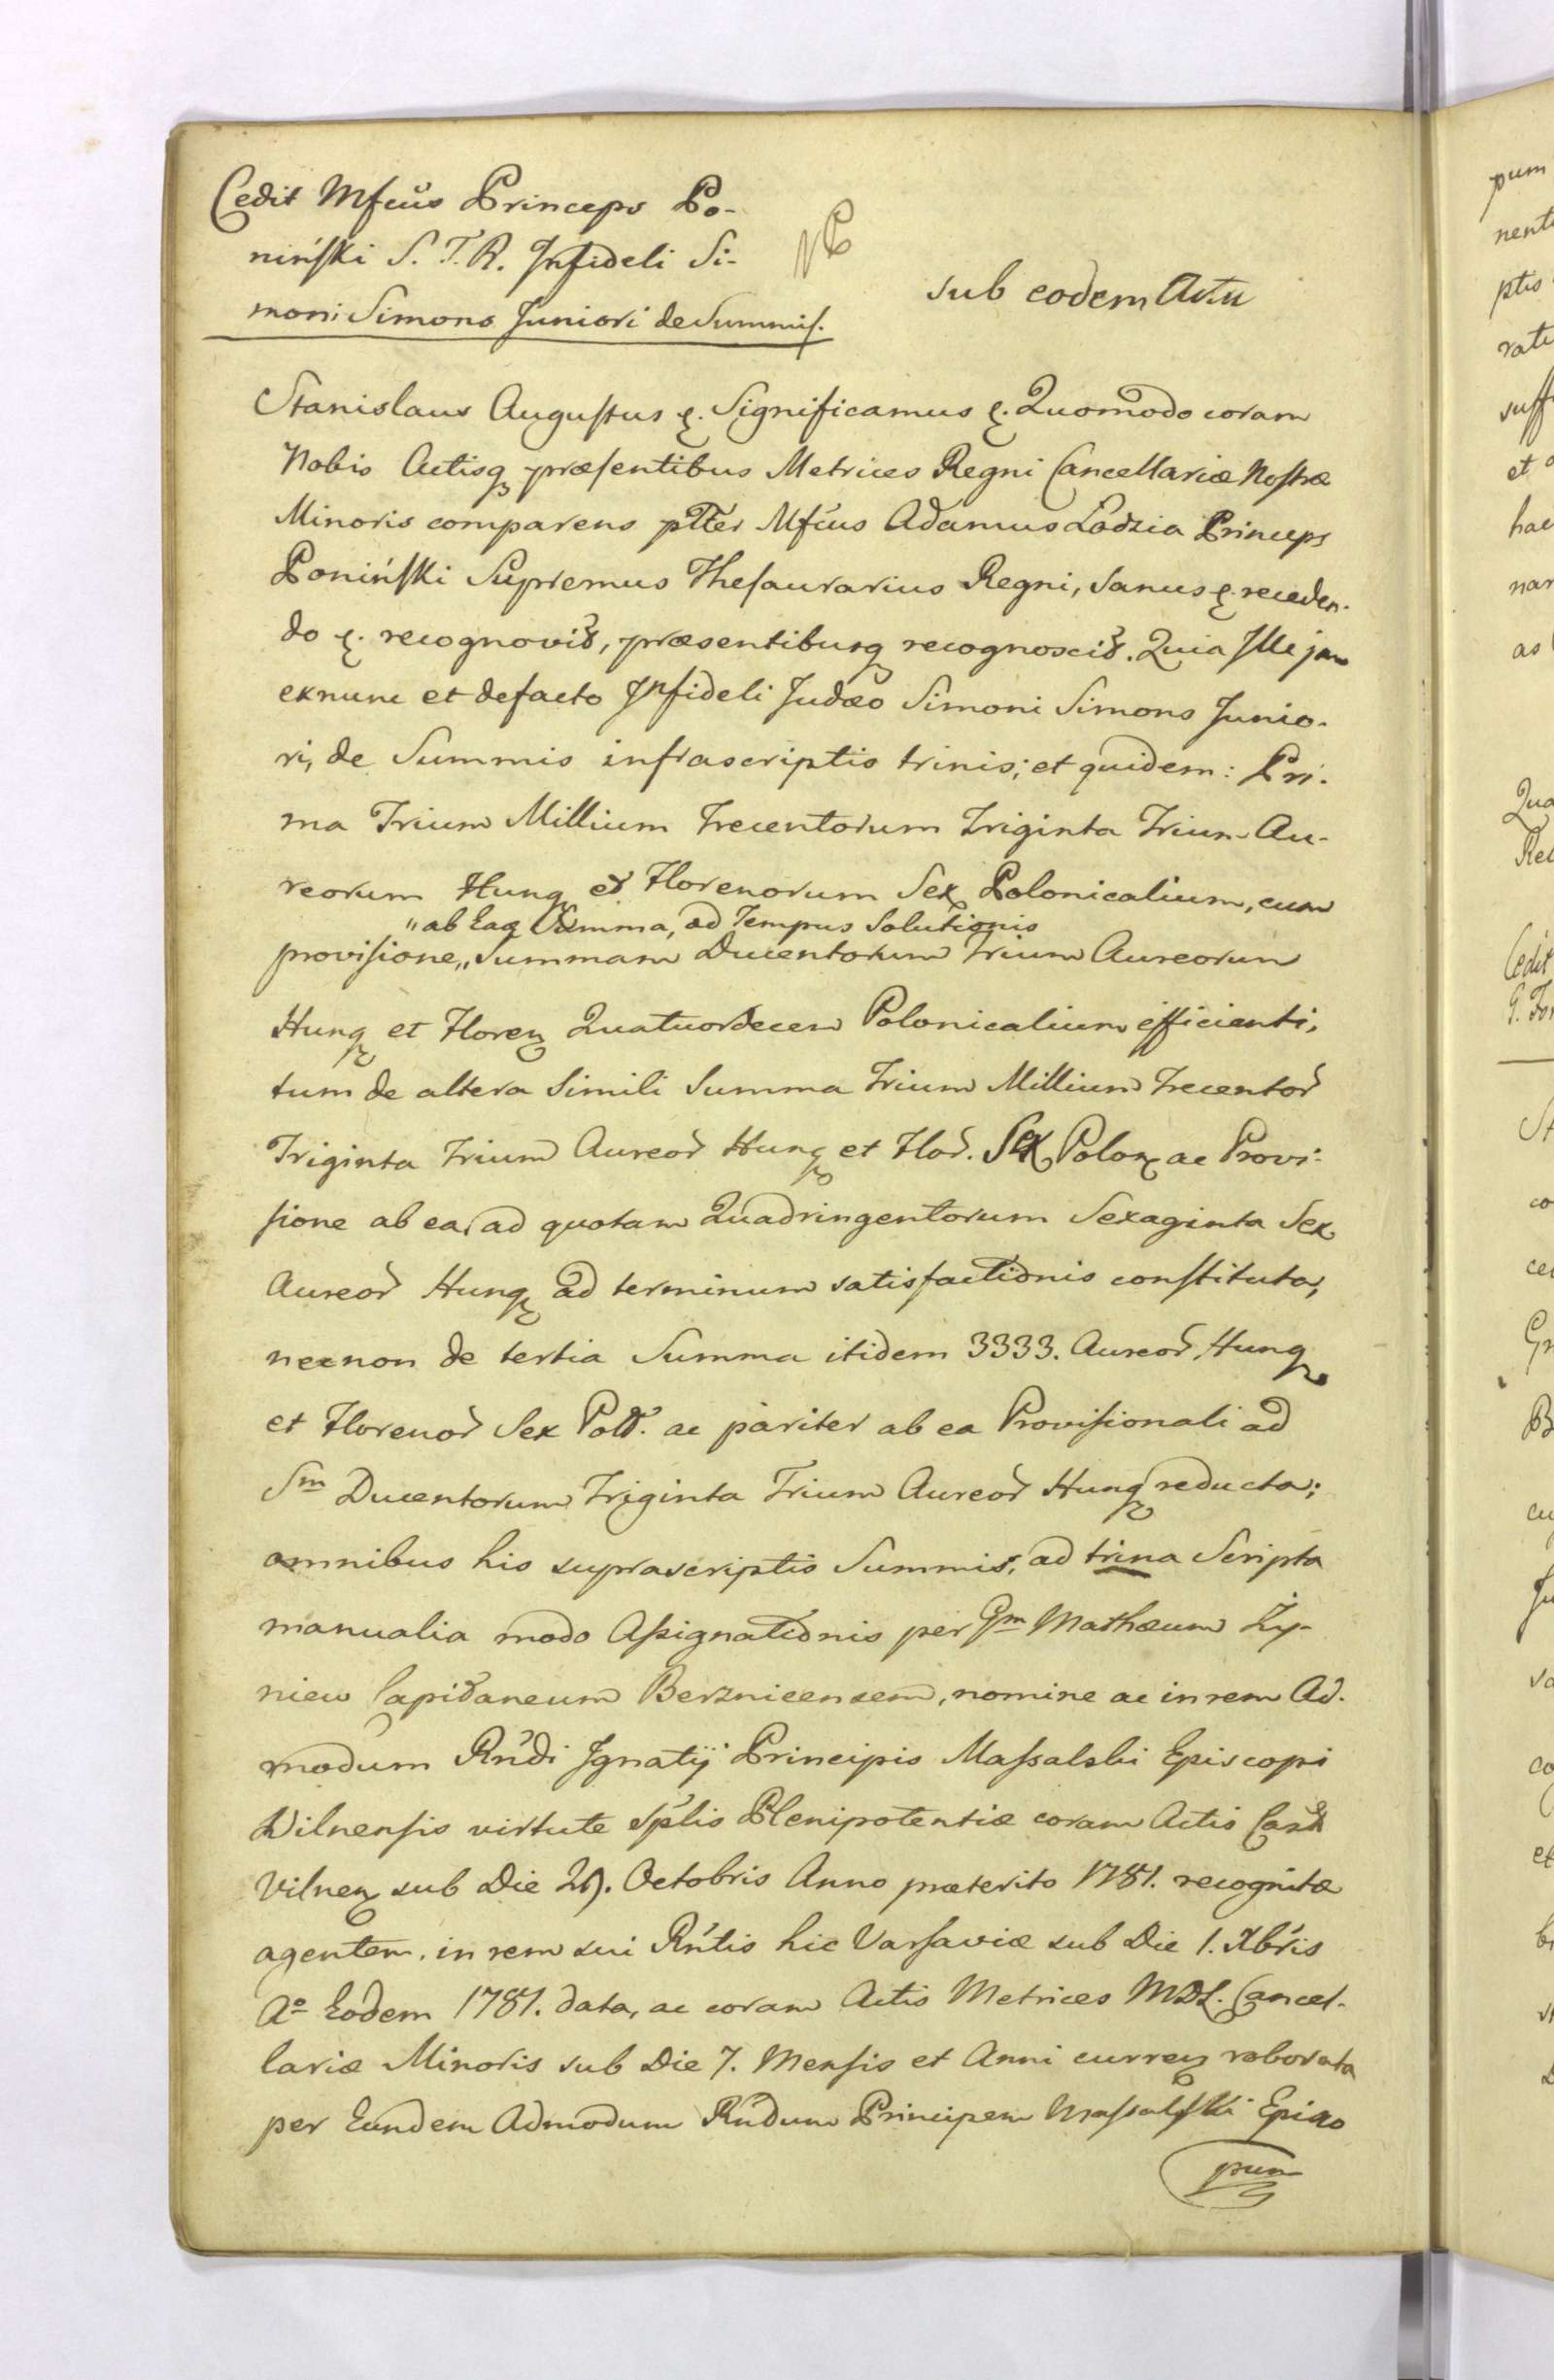 Cedit Mfcús Princeps Po-
nińſki S. T. R. Infideli Si-
moni Simons Juniori de Summis.
NB
sub eodem Actu
Stanislaus Auguſtus &. Significamus &. Quomodo coram
Nobis Actisq præſentibus Metrices Regni Cancellariæ Noſtræ
Minoris comparens pltter Mfcús Adamus Lodzia Princeps
Ponińſki Supremus Theſaurarius Regni, sanus &. receden-
do &. recognovit, præsentibusq recognoscit. Quia Ille jam
exnunc et defacto Infideli Judæo Simoni Simons Junio-
ri, de Summis infrascriptis trinis; et quidem: Pri-
ma Trium Millium Trecentorum Triginta Trium Au-
reorum Hung et Florenorum Sex Polonicalium, cum
„ab Eaq Summa, ad Tempus Solutionis
proviſione„ Summam Ducentorum Trium Aureorum
Hung et Floren Quatuordecem Polonicalium efficienti,
tum de altera Simili Summa Trium Millium Trecentor
Triginta Trium Aureor Hung et Flor. Sex Polon ac Provi-
ſione ab ea, ad quotam Quadringentorum Sexaginta Sex
Aureor Hung ad terminum satisfactionis conſtituta,
necnon de tertia Summa itidem 3333. Aureor Hung
et Florenor Sex Poll. ac pariter ab ea Proviſionali ad
Sm Ducentorum Triginta Trium Aureor Hung reducta;
omnibus his suprascriptis Summis, ad trina Scripta
manualia modo Aſsignationis per Gm Mathæum Ży-
niew Capidaneum Berznicensem, nomine ac in rem Ad-
modum Rńdi Ignatij Principis Maſsalski Episcopi
Vilnenſis virtute Splis Plenipotentiæ coram Actis Castr
Vilnen sub Die 29. Octobris Anno præterito 1781. recognitæ
agentem, in rem sui Rńtis hic Varſaviæ sub Die 1. Xbris
Ao Eodem 1781. data, ac coram Actis Metrices MDL. Cancel-
lariæ Minoris sub Die 7. Menſis et Anni curren roborata
per Eundem Admodum Rńdum Principem Maſsalſki Episco
pum